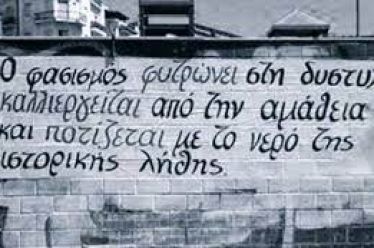 Ο φασισμός φυτρώνει στη δυστυ
καλλιεργείται από την αμάθεια
και ποτίζεται με το νερό της
ιστορικής λήθης.